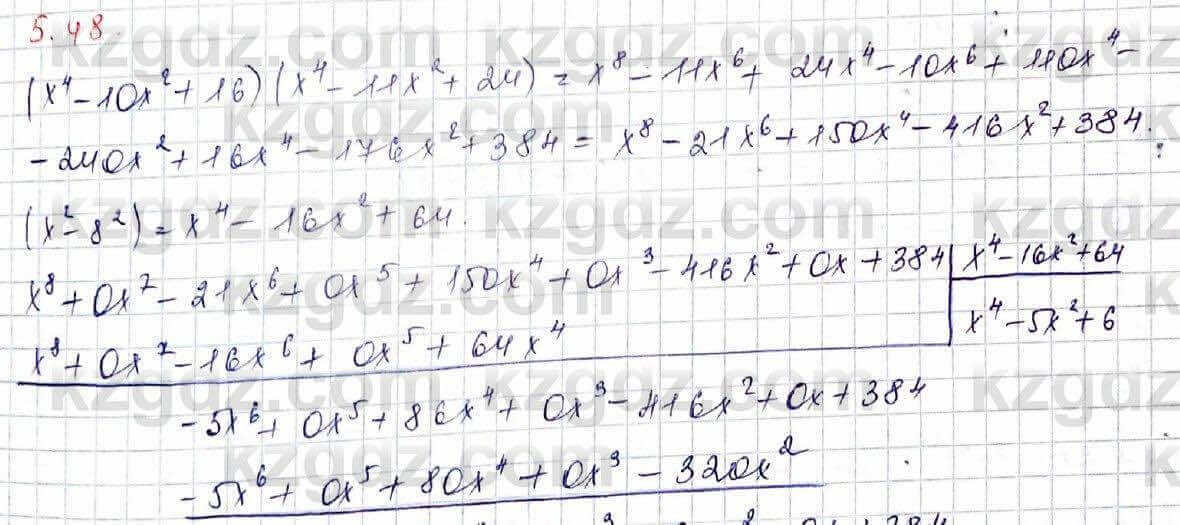 5.48.
(x⁴-10x²+16)(x⁴-11x²+24)=x⁸-11x⁶+24x⁴-10x⁶+110x⁴-
-240x²+16x⁴-176x²+384=x⁸-21x⁶+150x⁴-416x²+384.
(x²-8²)=x⁴-16x²+64.
x⁸+0x⁷-21x⁶+0x⁵+150x⁴+0x³-416x²+0x+384 | x⁴-16x²+64
x⁸+0x⁷-16x⁶+0x⁵+64x⁴ | x⁴-5x²+6
-5x⁶+0x⁵+86x⁴+0x³-416x²+0x+384
-5x⁶+0x⁵+80x⁴+0x³-320x²
kzgdz.com